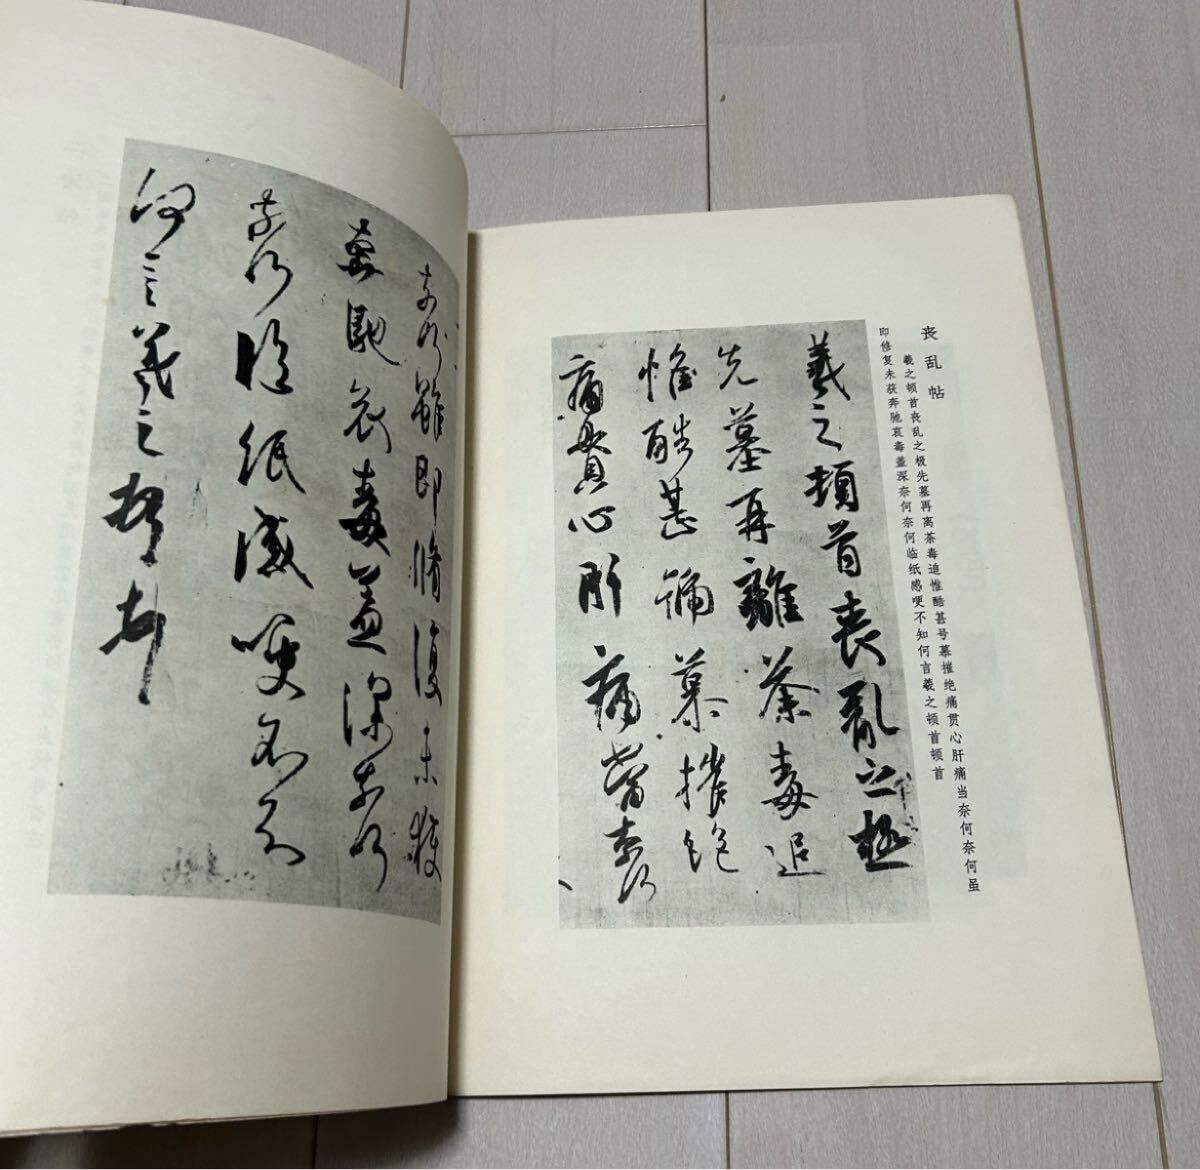 丧乱帖
羲之顿首丧乱之极先墓再离荼毒追惟酷甚号慕摧绝痛贯心肝痛当奈何奈何虽
即修复未获奔驰哀毒益深奈何奈何临纸感哽不知何言羲之顿首顿首
羲之頓首喪亂之極
先墓再離荼毒追
惟酷甚號慕摧絕
痛貫心肝痛當奈何
奈何雖即脩復未獲
奔馳哀毒益深奈何
奈何臨紙感哽不知
何言羲之頓首